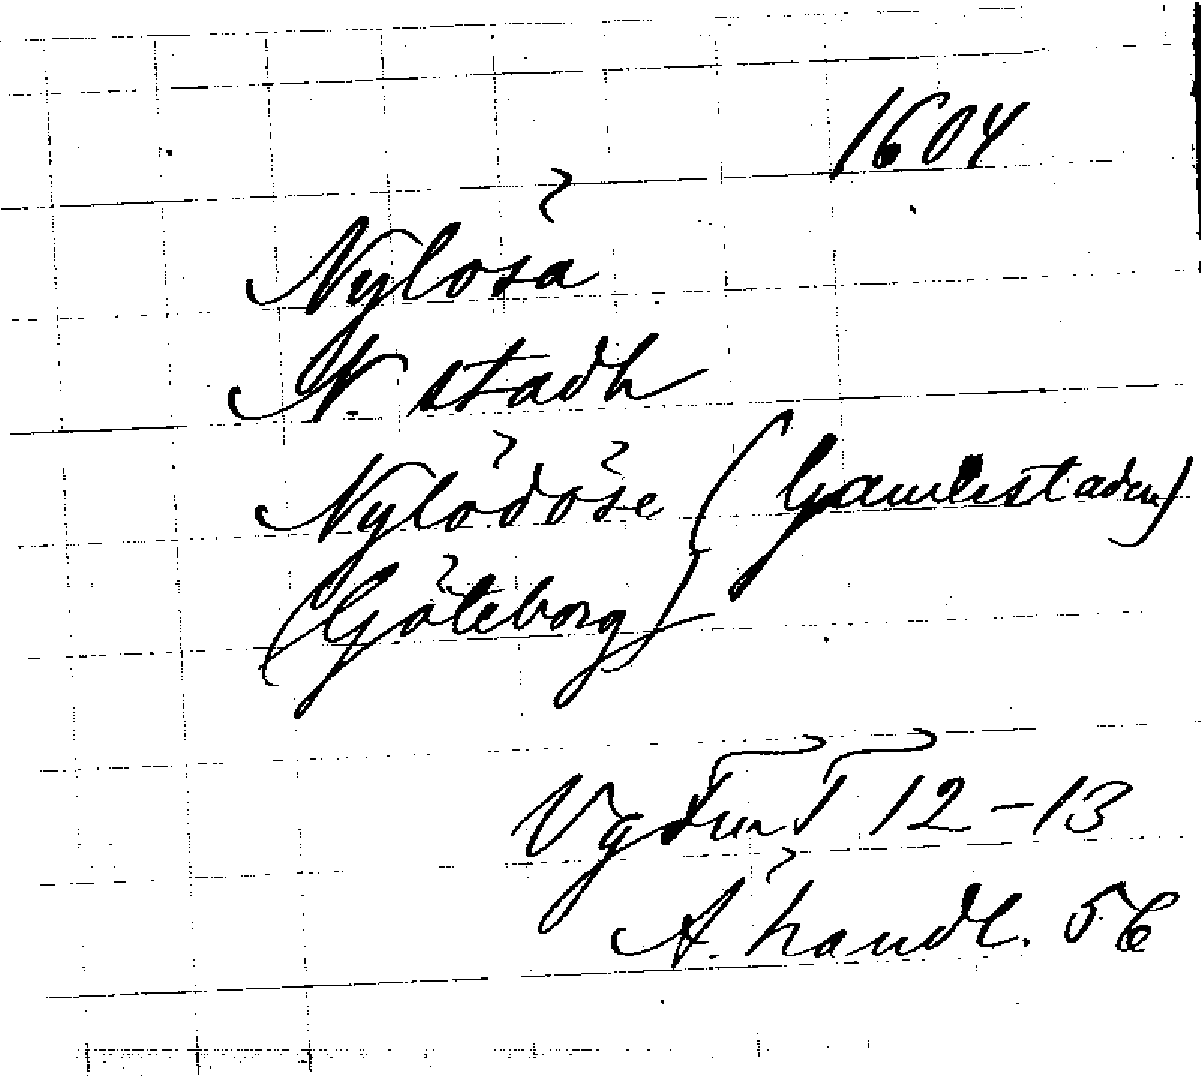 1604
Nylösa
N. stadh
Nylödöse (Gamlestaden)
(Göteborg)
12-13
Ä. handl. 56